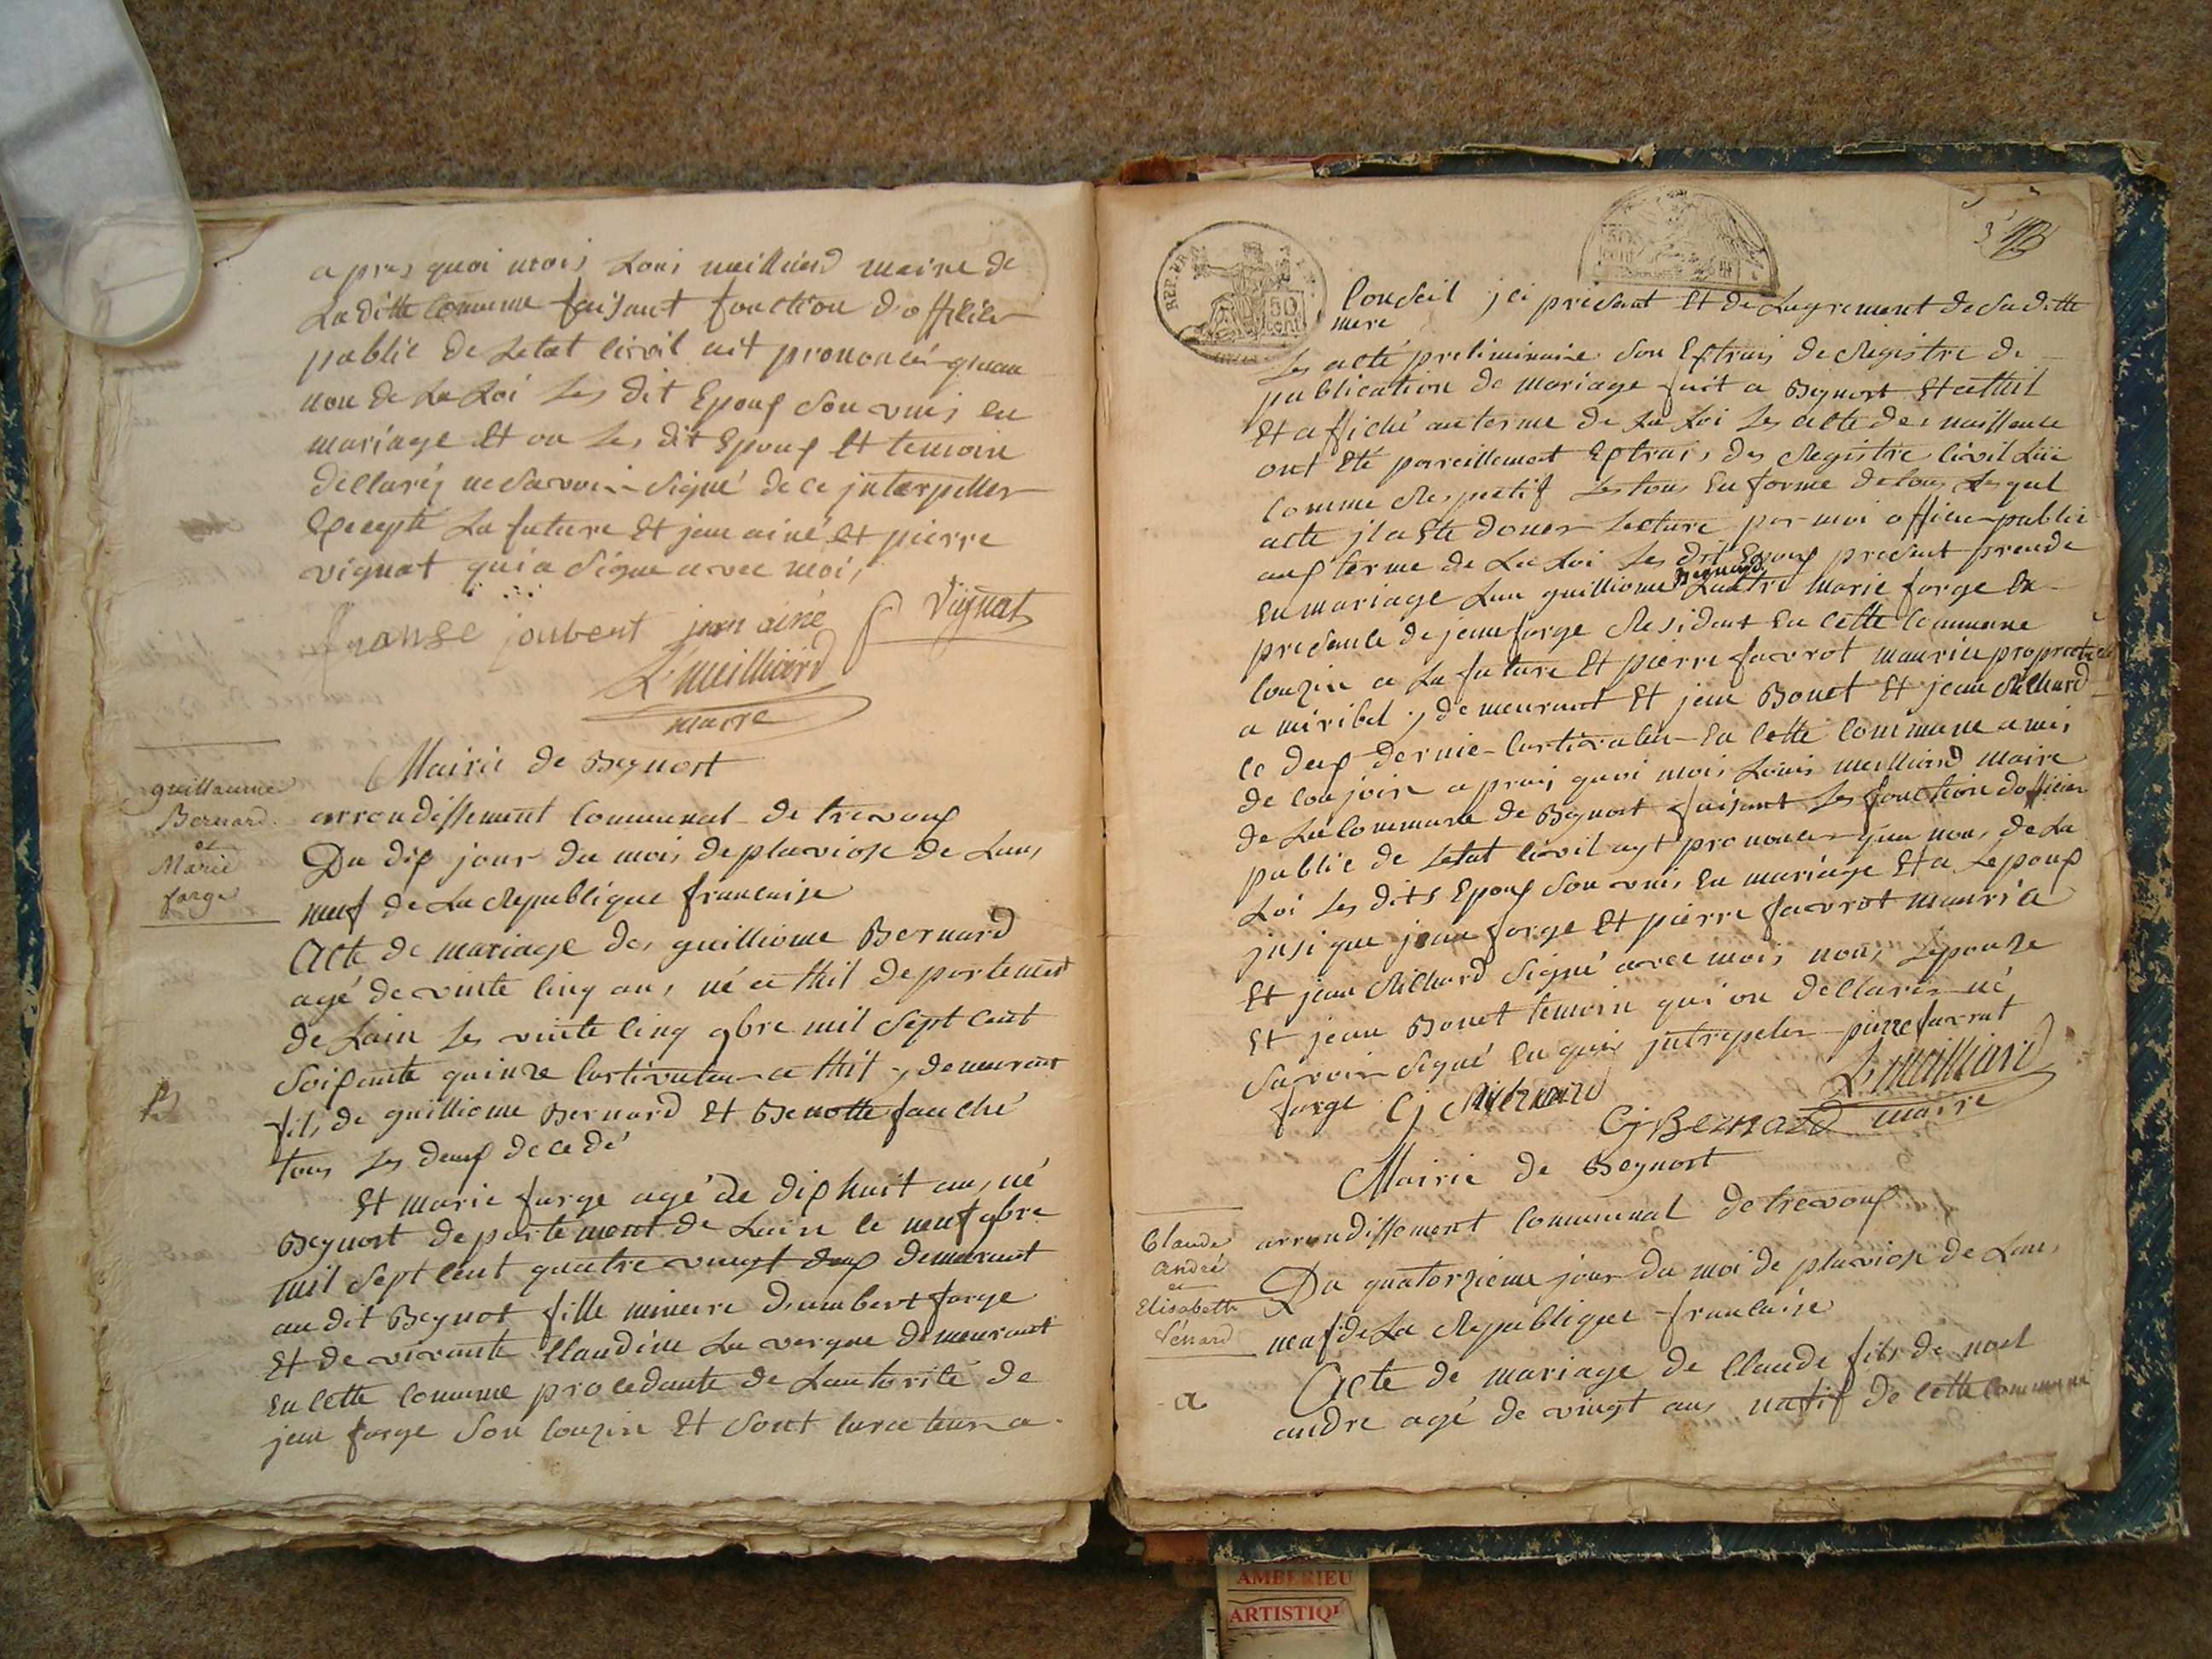 a pres quoi mois Loui meilliard maire de
La ditte comune faisant fonction d'officier
public de Letat civil ait prononcé quau
non de La Loi Les dit Epoux son unis en
mariage Et on Les dit Epoux Et temoin
dellarés ne savoir signé de ce jnterpeller
Excepté La future Et jean ainé Et pierre
vignat qui a signe avec moi
franse joubert jean ainé P Vignat
L. meilliard
maire
Mairie de Beynost
guillaume
Bernard
et
Marie
forge
arrondissement Communal de trevoux
Du dix jour du mois de pluviose de Lans
neuf de La Republique francaise
Acte de mariage des guilliome Bernard
agé de vinte cinq ans né a thil departement
de Lain Les vinte cinq 9bre mil sept cent
soixante quinze Cultivateur a thil y demeurant
fils de guilliome Bernard Et Benotte fauché
tous Les deux decedé
Et marie forge agé de dix huit ans né
Beynost departement de Lain le neuf 9bre
mil sept cent quatre vingt deux demeurant
au dit Beynot fille mineure dumbert forge
Et de vivante Claudine La vergne demeurant
En cette comune procedante de Lautorité de
jean forge son couzin Et sont curateur a
REP. FRA
50
cent
50
cent
3
Conseil jci présent Et de Lagrement de sa ditte
mere
Les acte preliminaire son Extrais de Registre de
publication de mariage fait a Beynost Et a thil
Et affiché au terme de La Loi Les acte des naissance
ont Eté pareillement Extrais des Registre civil
Comme Respectif Les tous En forme delous Lesquel
acte jl a Eté doner Lecture par moi officier public
aux terme de La Loi Les dit Epoux present prende
En mariage Lun guilliome Bernard Lautre Marie forge En
presence de jean forge Resident En cette Commune
Couzin a La future Et pierre favrot maurice propriete
a miribel y demeurant Et jean Bonet Et jean Richard
ce deux dernier Cultivateur En Cette Commune amis
de conjoin a prais quoi mois Louis meilliard maire
de La Commune de Beynost faisant Les fonction dofficier
public de Letat civil ayt prononcer quau non de La
Loi Les dits Epoux son unis En mariage Et a Lepoux
jnsi que jean forge Et pierre favrot maurice
Et jean Richard signé avec mois nons Lepouze
Et jean Bonet temoin qui on dellarés né
savoir signé En quis jntrepeler pierre favrat
forge L. meilliard
Cj Bernard maire
Mairie de Beynost
Claude
André
et
Elisabeth
Vénard
arrondissement Communal de trevoux
Du quatorzieme jour du moi de pluviose de Lans
neuf de La Republique francaise
a
Acte de mariage de Claude fils de noel
andre agé de vingt ans natif de cette commune
AMBERIEU
ARTISTIQU